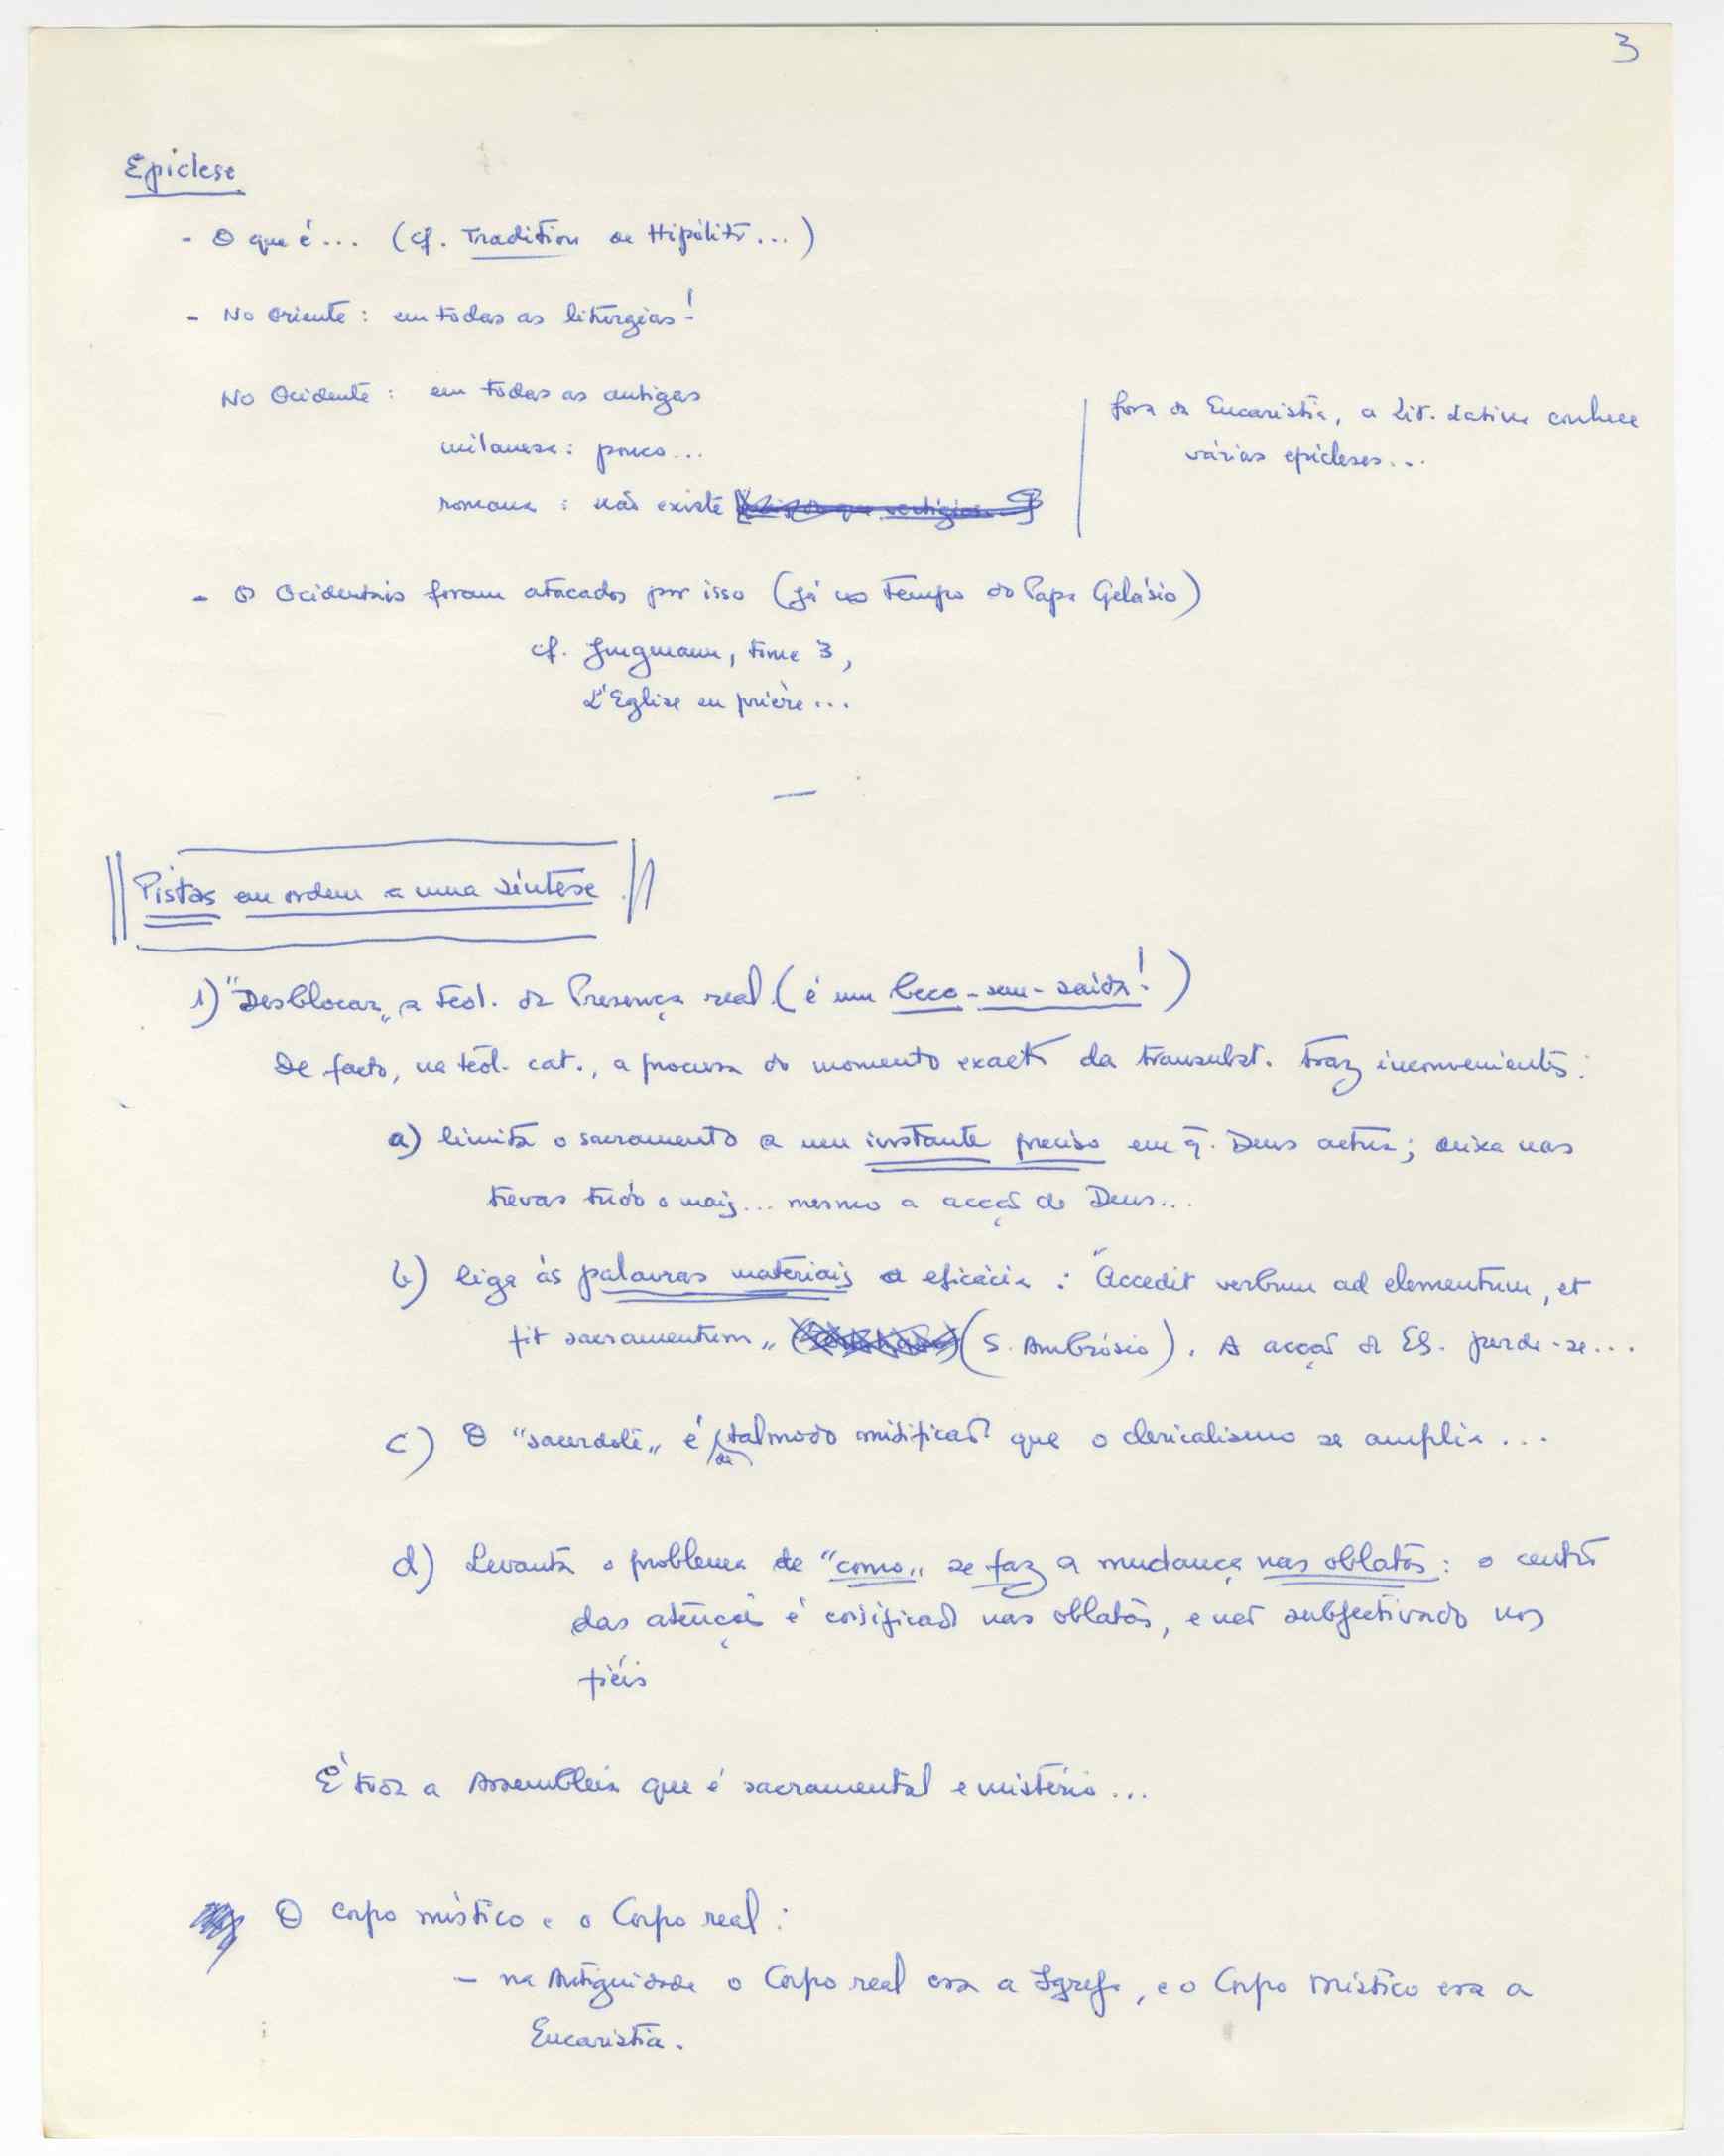 3
Epiclese
- O que é... (cf. Tradition de Hipólito...)
- No Oriente: em todas as liturgias!
No Ocidente: em todas as antigas
milanesa: pouco...
romana: não existe
fora da Eucaristia, a Lit. Latina conhece
várias epicleses...
- Os Ocidentais foram atacados por isso (já no tempo do Papa Gelásio)
cf. Jungmann, tome 3,
L'Eglise en prière...
Pistas em ordem a uma síntese
1) "Desblocar" a teol. da Presença real (é um beco-sem-saída!)
De facto, na teol. cat., a procura do momento exacto da transubst. traz inconvenientes:
a) limita o sacramento a um instante preciso em q. Deus actua; deixa nas
trevas tudo o mais... mesmo a acção de Deus...
b) liga às palavras materiais a eficácia: "Accedit verbum ad elementum, et
fit sacramentum" (S. Ambrósio). A acção do ES. perde-se...
c) O "sacerdote" é de tal modo mitificado que o clericalismo se amplia...
d) Levanta o problema de "como" se faz a mudança nas oblatas: o centro
das atenções é coisificado nas oblatas, e não subjectivado nos
fiéis
É toda a Assembleia que é sacramental e mistério...
O corpo místico e o Corpo real:
- na Antiguidade o Corpo real era a Igreja, e o Corpo místico era a
Eucaristia.